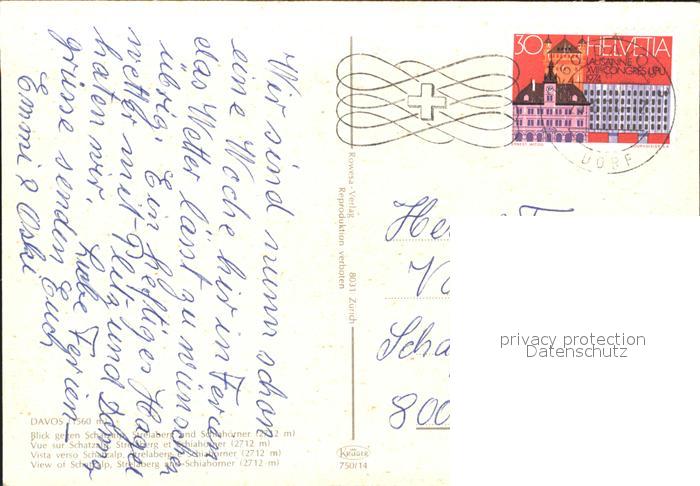 Wir sind nunn schon
eine Woche hir in Ferien
das Wetter lässt zu wünschen
übrig. Ein heftiges Hagel
wetter mit Blitz und Donner
haten wir. Liebe Ferien-
grüsse senden Euch
Emmi & Oski
30 HELVETIA
LAUSANNE
XVII CONGRÈS UPU
1974
DORF
Rowesa-Verlag 8031 Zürich
Reproduktion verboten
He
Sch
800
privacy protection
Datenschutz
DAVOS 1560 m
Blick gegen Schatzalp, Strelaberg und Schiahörner (2712 m)
Vue sur Schatzalp, Strelaberg et Schiahörner (2712 m)
Vista verso Schatzalp, Strelaberg e Schiahörner (2712 m)
View of Schatzalp, Strelaberg and Schiahörner (2712 m)
KRÜGER
750/14